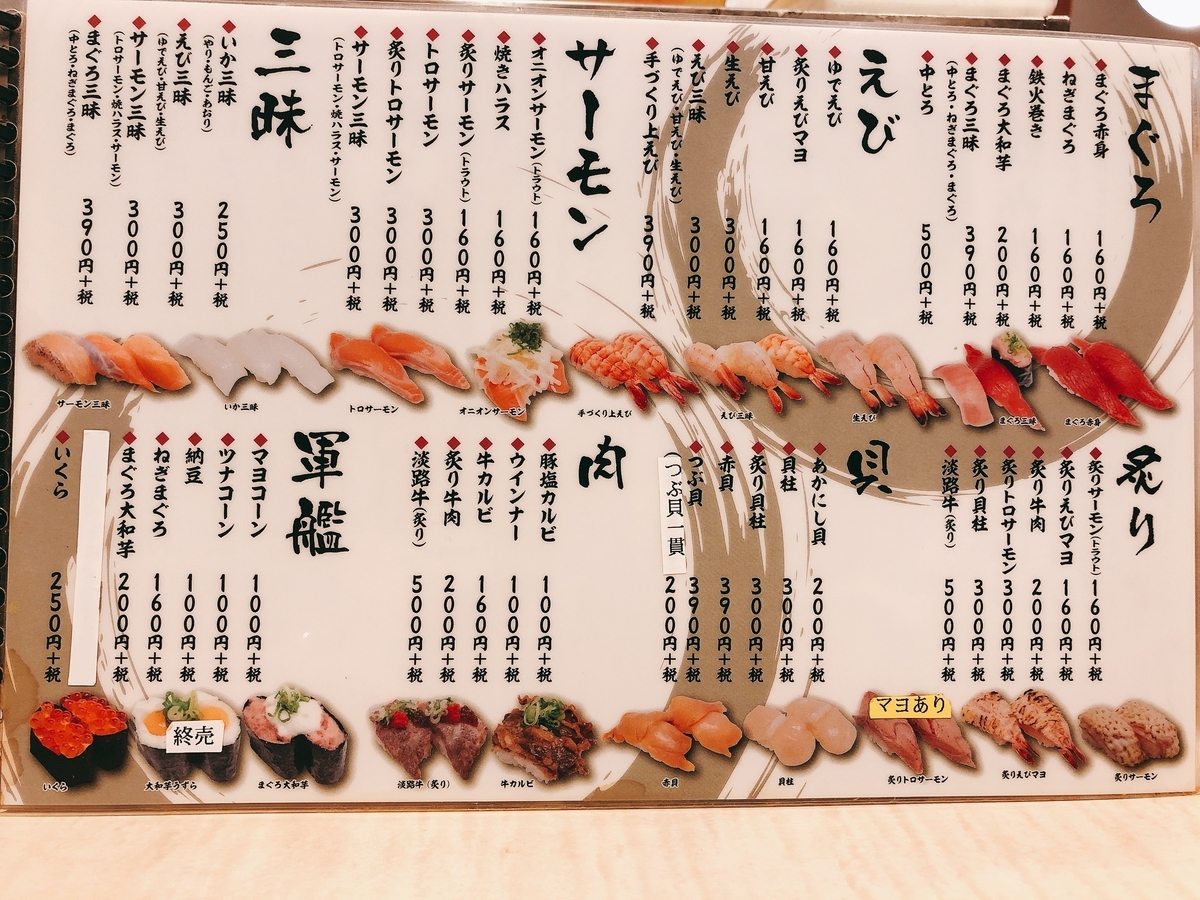 まぐろ
まぐろ赤身 160円+税
ねぎまぐろ 160円+税
鉄火巻き 160円+税
まぐろ大和芋 200円+税
まぐろ三昧 390円+税
(中とろ・ねぎまぐろ・まぐろ)
中とろ 500円+税
えび
ゆでえび 160円+税
炙りえびマヨ 160円+税
甘えび 160円+税
生えび 300円+税
えび三昧 300円+税
(ゆでえび・甘えび・生えび)
手づくり上えび 390円+税
サーモン
オニオンサーモン(トラウト) 160円+税
焼きハラス 160円+税
炙りサーモン(トラウト) 160円+税
トロサーモン 300円+税
炙りトロサーモン 300円+税
サーモン三昧 300円+税
(トロサーモン・焼ハラス・サーモン)
三昧
いか三昧 250円+税
(やり・もんご・あおり)
えび三昧 300円+税
(ゆでえび・甘えび・生えび)
サーモン三昧 300円+税
(トロサーモン・焼ハラス・サーモン)
まぐろ三昧 390円+税
(中とろ・ねぎまぐろ・まぐろ)
サーモン三昧
いか三昧
トロサーモン
オニオンサーモン
手づくり上えび
えび三昧
生えび
まぐろ三昧
まぐろ赤身
炙り
炙りサーモン(トラウト) 160円+税
炙りえびマヨ 160円+税
炙り牛肉 200円+税
炙りトロサーモン 300円+税
炙り貝柱 300円+税
淡路牛(炙り) 500円+税
貝
あかにし貝 200円+税
貝柱 300円+税
炙り貝柱 300円+税
赤貝 390円+税
つぶ貝 390円+税
(つぶ貝一貫 200円+税
肉
豚塩カルビ 100円+税
ウインナー 100円+税
牛カルビ 160円+税
炙り牛肉 200円+税
淡路牛(炙り) 500円+税
軍艦
マヨコーン 100円+税
ツナコーン 100円+税
納豆 100円+税
ねぎまぐろ 160円+税
まぐろ大和芋 200円+税
いくら 250円+税
いくら
終売
大和芋うずら
まぐろ大和芋
淡路牛(炙り)
牛カルビ
赤貝
貝柱
マヨあり
炙りトロサーモン
炙りえびマヨ
炙りサーモン